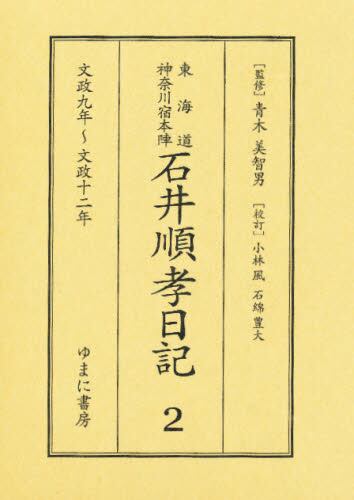 ［監修］青木 美智男 ［校訂］小林風 石綿豊大
東海道
神奈川宿本陣
石井順孝日記 2
文政九年～文政十二年
ゆまに書房